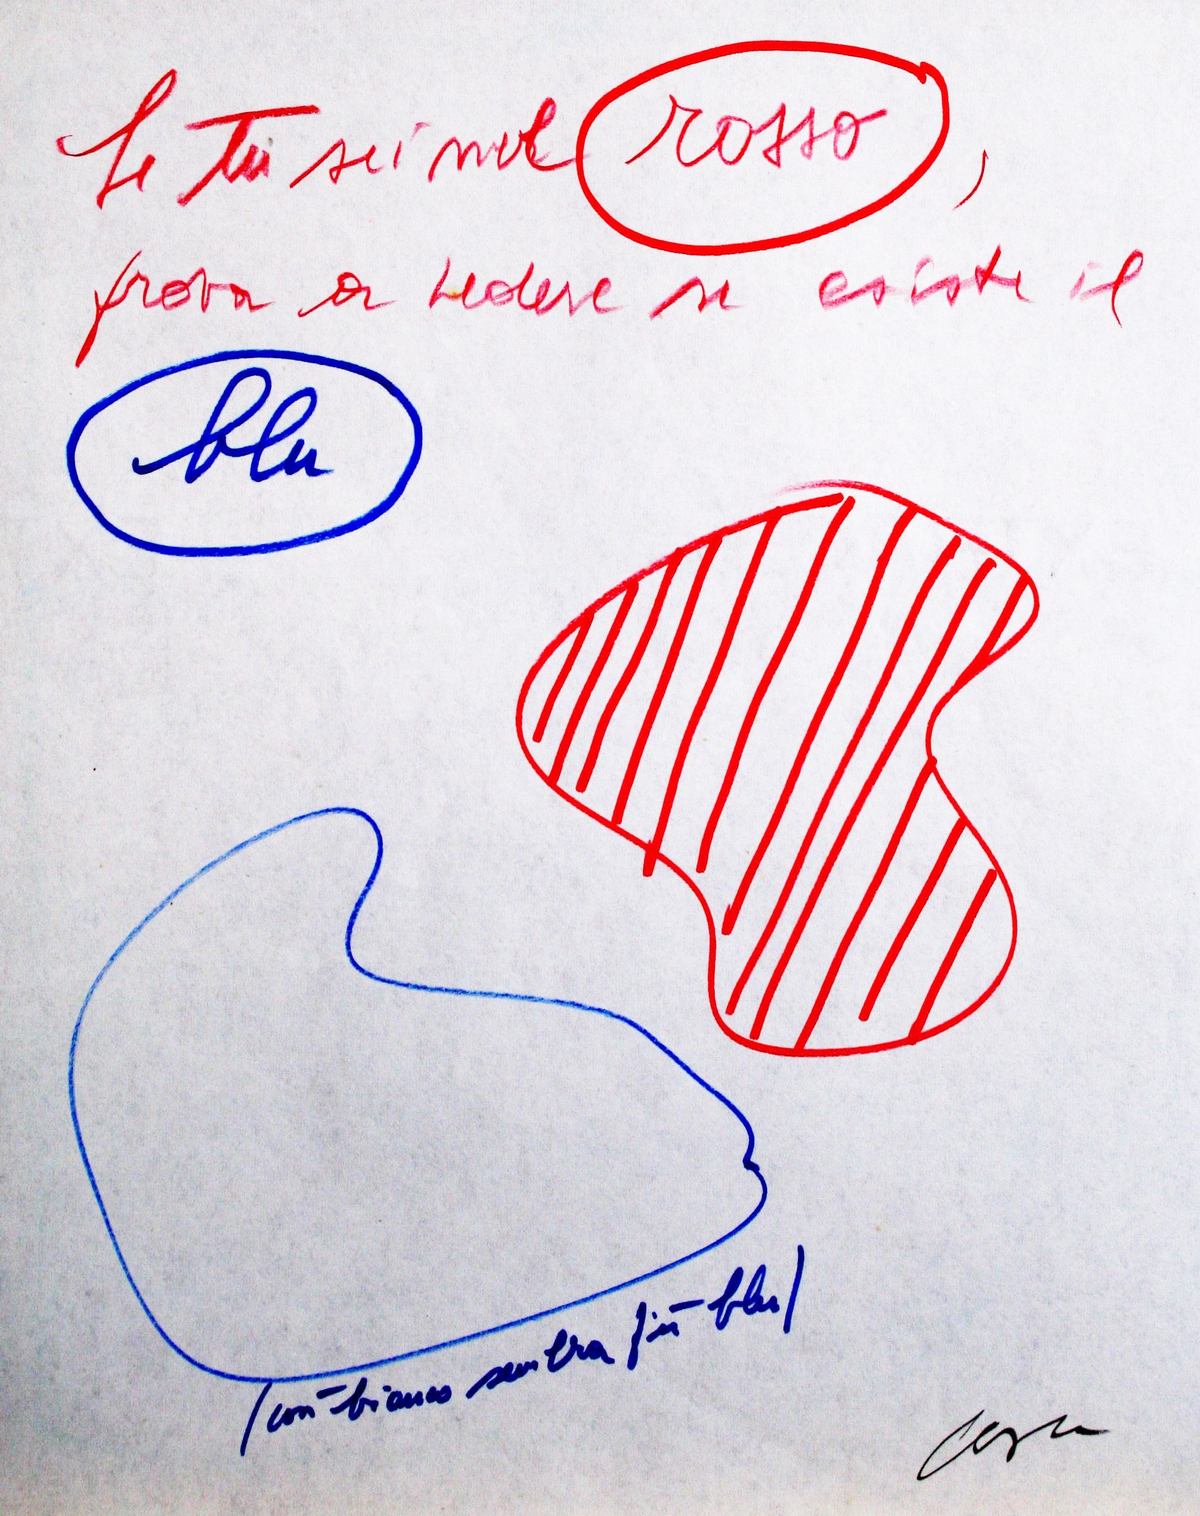 Se tu sei nel rosso,
prova a vedere se esiste il
blu
(così bianco sembra più blu)